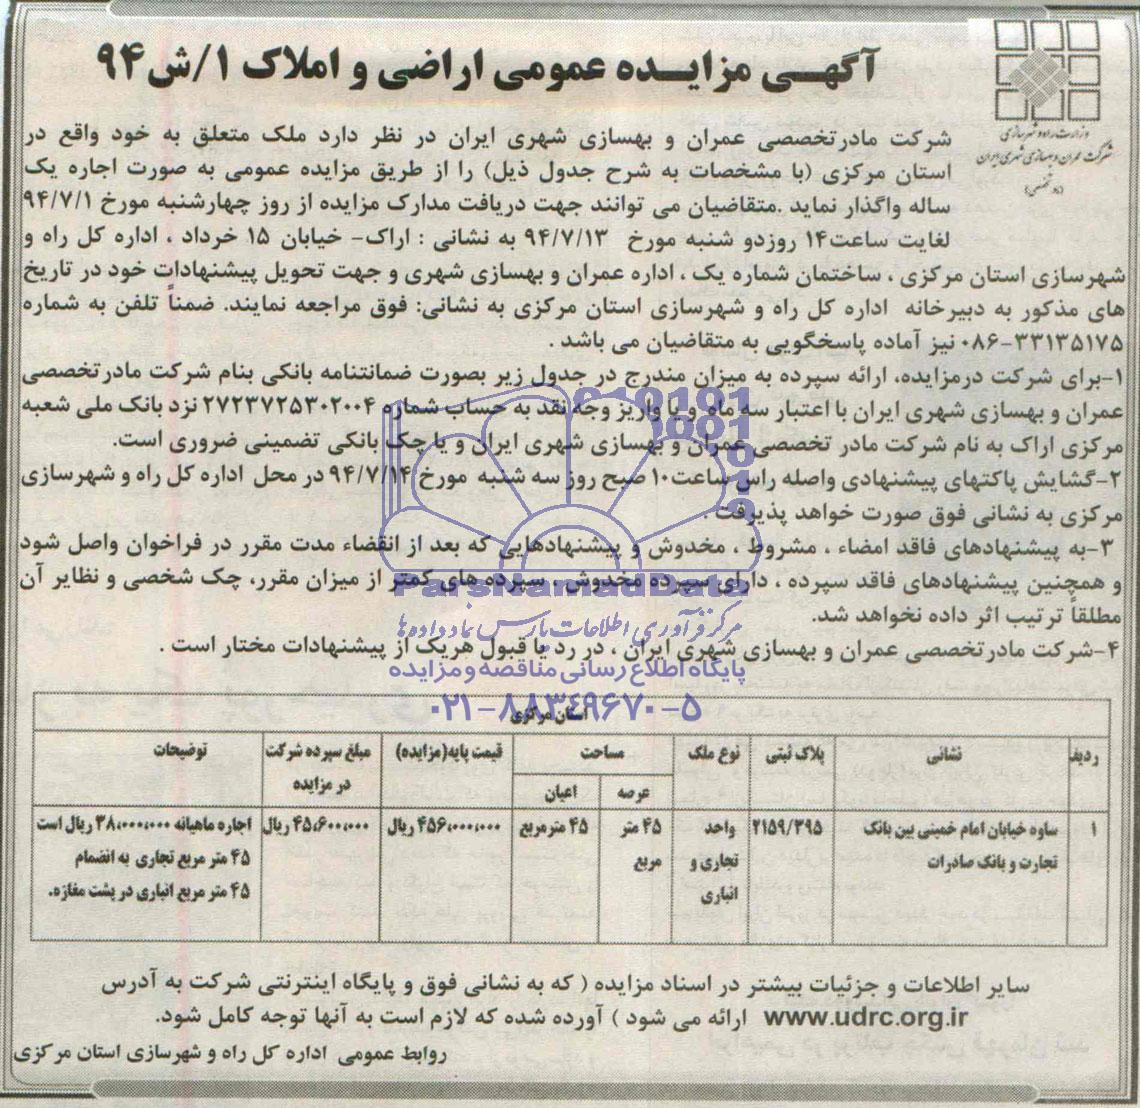 آگهی مزایده عمومی اراضی و املاک ۱/ش۹۴
وزارت راه و شهرسازی
شرکت عمران و بهسازی شهری ایران
شرکت مادرتخصصی عمران و بهسازی شهری ایران در نظر دارد ملک متعلق به خود واقع در
استان مرکزی (با مشخصات به شرح جدول ذیل) را از طریق مزایده عمومی به صورت اجاره یک
ساله واگذار نماید .متقاضیان می توانند جهت دریافت مدارک مزایده از روز چهارشنبه مورخ ۹۴/۷/۱
لغایت ساعت۱۴ روزدو شنبه مورخ ۹۴/۷/۱۳ به نشانی : اراک- خیابان ۱۵ خرداد ، اداره کل راه و
شهرسازی استان مرکزی ، ساختمان شماره یک ، اداره عمران و بهسازی شهری و جهت تحویل پیشنهادات خود در تاریخ
های مذکور به دبیرخانه اداره کل راه و شهرسازی استان مرکزی به نشانی: فوق مراجعه نمایند. ضمناً تلفن به شماره
۰۸۶-۳۳۱۳۵۱۷۵ نیز آماده پاسخگویی به متقاضیان می باشد .
۱-برای شرکت درمزایده، ارائه سپرده به میزان مندرج در جدول زیر بصورت ضمانتنامه بانکی بنام شرکت مادرتخصصی
عمران و بهسازی شهری ایران با اعتبار سه ماه و یا واریز وجه نقد به حساب شماره ۲۷۲۳۷۲۵۳۰۲۰۰۴ نزد بانک ملی شعبه
مرکزی اراک به نام شرکت مادر تخصصی عمران و بهسازی شهری ایران و یا چک بانکی تضمینی ضروری است.
۲-گشایش پاکتهای پیشنهادی واصله راس ساعت۱۰ صبح روز سه شنبه مورخ ۹۴/۷/۱۴ در محل اداره کل راه و شهرسازی
مرکزی به نشانی فوق صورت خواهد پذیرفت .
۳-به پیشنهادهای فاقد امضاء ، مشروط ، مخدوش و پیشنهادهایی که بعد از انقضاء مدت مقرر در فراخوان واصل شود
و همچنین پیشنهادهای فاقد سپرده ، دارای سپرده مخدوش ، سپرده های کمتر از میزان مقرر، چک شخصی و نظایر آن
مطلقاً ترتیب اثر داده نخواهد شد.
۴-شرکت مادرتخصصی عمران و بهسازی شهری ایران ، در رد یا قبول هریک از پیشنهادات مختار است .
ParsNamadData
مرکز فرآوری اطلاعات پارس نماد داده ها
پایگاه اطلاع رسانی مناقصه و مزایده
۰۲۱-۸۸۳۴۹۶۷۰-۵
استان مرکزی
ردیف نشانی پلاک ثبتی نوع ملک مساحت قیمت پایه(مزایده) مبلغ سپرده شرکت توضیحات
در مزایده
عرصه اعیان
۱ ساوه خیابان امام خمینی بین بانک ۲۱۵۹/۳۹۵ واحد ۴۵ متر ۴۵ مترمربع ۴۵۶،۰۰۰،۰۰۰ ریال ۴۵،۶۰۰،۰۰۰ ریال اجاره ماهیانه ۳۸،۰۰۰،۰۰۰ ریال است
تجارت و بانک صادرات تجاری و مربع ۴۵ متر مربع تجاری به انضمام
انباری ۴۵ متر مربع انباری در پشت مغازه.
سایر اطلاعات و جزئیات بیشتر در اسناد مزایده ( که به نشانی فوق و پایگاه اینترنتی شرکت به آدرس
www.udrc.org.ir ارائه می شود ) آورده شده که لازم است به آنها توجه کامل شود.
روابط عمومی اداره کل راه و شهرسازی استان مرکزی